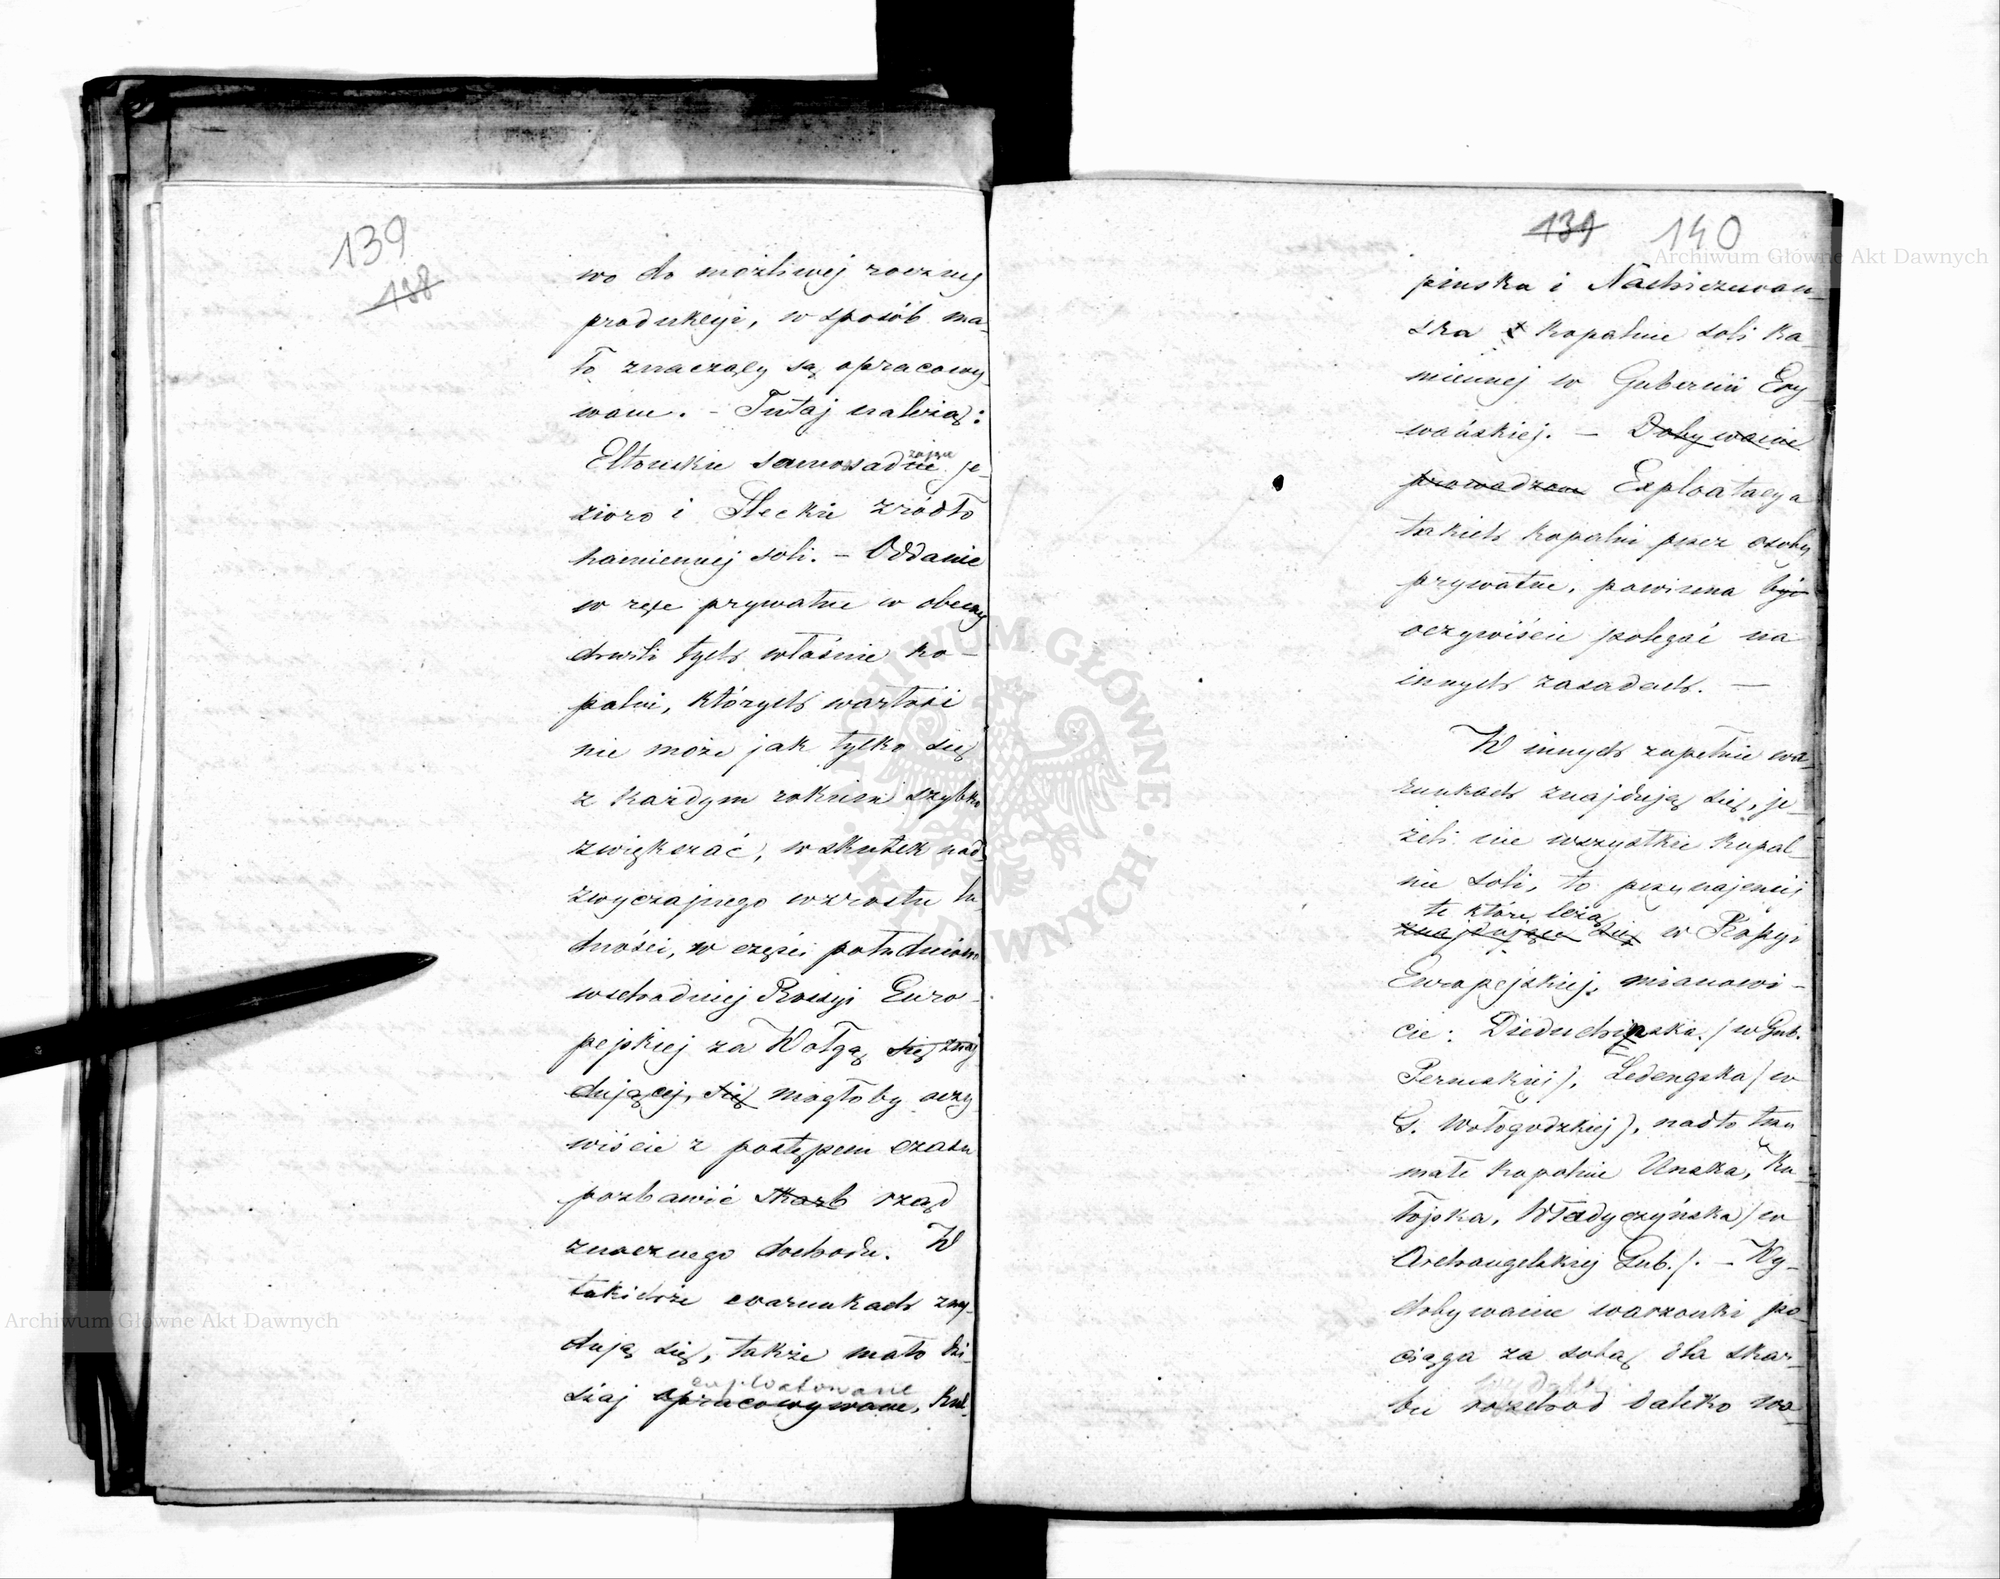 139
138
wo do możliwej roczney
produkcyi, w sposób ma-
ło znaczący są opracowy-
wane. – Tutaj należą:
Eltońskie samosadne je-
zioro i Iłeckie źródło
kamiennej soli. – Oddanie
w ręce prywatne w obecnej
chwili tych właśnie ko-
palni, których wartość
nie może jak tylko się
z każdym rokiem szybko
zwiększać, w skutek nad-
zwyczajnego wzrostu lu-
dności, w części południowo
wschodniej Rossyi Euro-
pejskiej za Wołgą się znaj
dującej, się mogłoby oczy
wiście z postępem czasu
pozbawić skarb rząd
znacznego dochodu. W
takichże warunkach znaj-
dują się, także mało dzi-
exploatowane
siaj opracowywane, Kul-
139 140
pińska i Nachiczewań-
ska kopalnie soli ka-
miennej w Gubernii Ery
wańskiej. – Dobywanie
prowadzone Exploatacya
takich kopalni przez osoby
prywatne, powinna być
oczywiście polegać na
innych zasadach. —
W innych zupełnie wa-
runkach znajdują się, je-
żeli nie wszystkie kopal-
nie soli, to przynajmniej
te które leżą
znajdujące się w Rossyi
Europejskiej, mianowi-
cie: Dieduchińska (w Gub.
Permskiej), Ledengska (w
G. Wołogodzkiej), nadto trzy
małe kopalnie Unska, Ku-
łojska, Władyczyńska (w
Archangelskiej Gub.). – Wy-
dobywanie warzonki po-
ciąga za sobą dla skar-
wydatki
bu rozchod daleko wa-
Archiwum Główne Akt Dawnych
Archiwum Główne Akt Dawnych
ARCHIWUM GŁÓWNE AKT DAWNYCH